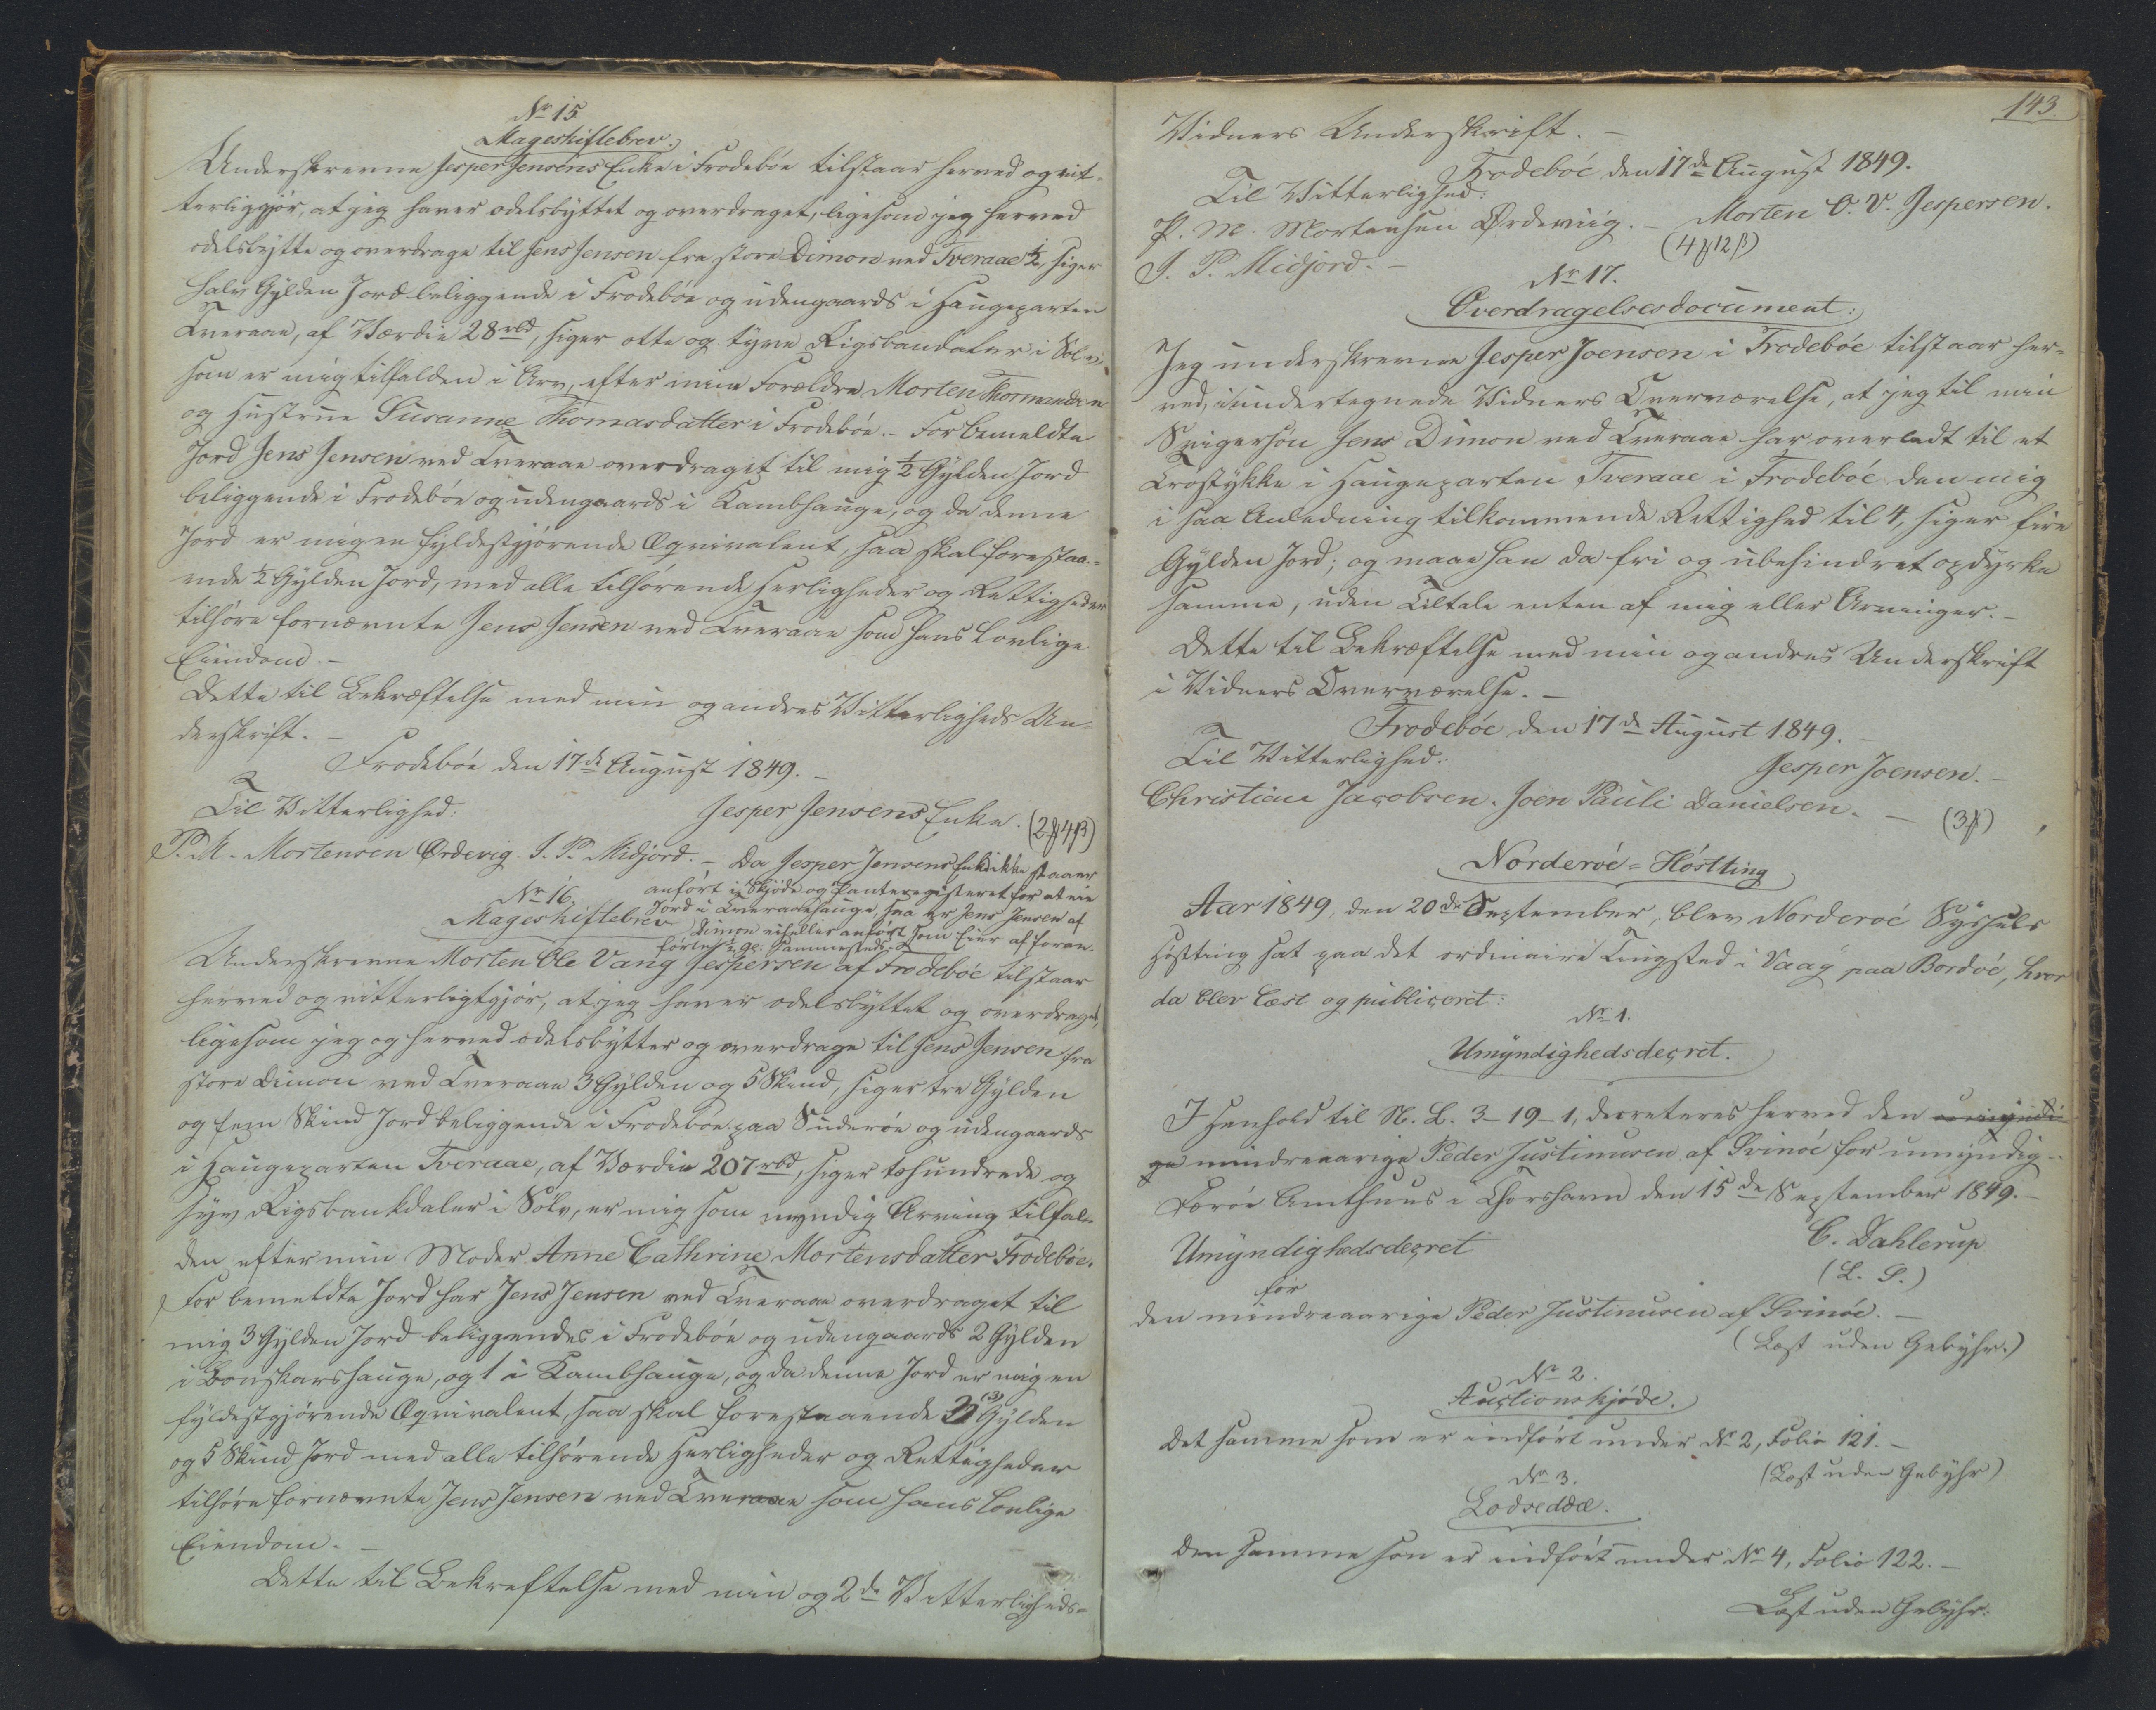 No 15
Mageskiftebrev.
Underskrevne Jesper Jensens Enke i Frodebøe tilstaar herved og vit-
terliggjør, at jeg haver odelsbyttet og overdraget, ligesom jeg herved
odelsbytte og overdrage til Jens Jensen fra store Dimon ved Tveraae ½, siger
halv Gylden Jord beliggende i Frodebøe og udengaards i Haugeparten
Tveraae, af Værdie 28 rbd, siger otte og tyve Rigsbankdaler i Sølv,
som er mig tilfalden i Arv, efter mine Forældre Morten Thommesen
og Hustrue Susanne Thomasdatter i Frodebøe. - For bemeldte
Jord Jens Jensen ved Tveraae overdraget til mig ½ Gylden Jord
beliggende i Frodebøe og udengaards i Kambhauge, og da denne
Jord er mig en fyldestgjørende Æqvivalent, saa skal forestaa-
ende ½ Gylden Jord, med alle tilhørende Herligheder og Rettigheder
tilhøre fornævnte Jens Jensen ved Tveraae som hans lovlige
Eiendom. -
Dette til Bekræftelse med min og andres Vitterligheds Un-
derskrift. -
Frodebøe den 17de August 1849. -
Til Vitterlighed:
Jesper Jensens Enke. (2 ℳ 4 β)
P. M. Mortensen Ørdevig. J. P. Midjord. - Da Jesper Jensens Enke ikke staaer
anført i Skjøde og Panteregisteret for at eie
Jord i Tveraaehauge, saa er Jens Jensen af
Dimon eiheller anført som Eier af foran-
førte ½ Gl. sammesteds.
No 16.
Mageskiftebrev
Underskrevne Morten Ole Vang Jespersen af Frodebøe tilstaar
herved og vitterligtgjør, at jeg haver odelsbyttet og overdraget,
ligesom jeg og herved odelsbytter og overdrage til Jens Jensen fra
store Dimon ved Tveraae 3 Gylden og 5 Skind, siger tre Gylden
og fem Skind Jord beliggende i Frodebøe paa Suderøe og udengaards
i Haugeparten Tveraae, af Værdie 207 rbd, siger tohundrede og
syv Rigsbankdaler i Sølv, er mig som myndig Arving tilfal-
den efter min Moder Anne Cathrine Mortensdatter Frodebøe.
For bemeldte Jord har Jens Jensen ved Tveraae overdraget til
mig 3 Gylden Jord beliggendes i Frodebøe og udengaards 2 Gylden
i Bonskarshauge, og 1 i Kambhauge, og da denne Jord er mig en
fyldestgjørende Æqvivalent, saa skal forestaaende 3 (3) Gylden
og 5 Skind Jord med alle tilhørende Herligheder og Rettigheder
tilhøre fornævnte Jens Jensen ved Tveraae som hans lovlige
Eiendom. -
Dette til Bekreftelse med min og 2de Vitterligheds-
143.
Vidners Underskrift. -
Frodebøe den 17de August 1849.
Til Vitterlighed:
Morten O. V. Jespersen.
P. M. Mortensen Ørdeviig. -
(4 ℳ 12 β)
J. P. Midjord. -
No 17.
Overdragelsesdocument:
Jeg underskrevne Jesper Joensen i Frodebøe tilstaar her-
ved, i undertegnede Vidners Overværelse, at jeg til min
Svigersøn Jens Dimon ved Tveraae har overladt til et
Trøstykke i Haugeparten Tveraae i Frodebøe den mig
i saa Anledning tilkommende Rettighed til 4, siger fire
Gylden Jord; og maae han da fri og ubehindret opdyrke
samme, uden Tiltale enten af mig eller Arvinger. -
Dette til Bekræftelse med min og andres Underskrift
i Vidners Overværelse. -
Frodebøe den 17de August 1849. -
Til Vitterlighed:
Jesper Joensen. -
Christian Jacobsen. Joen Pauli Danielsen. -
(3 ℳ)
Norderøe-Høstting
Aar 1849, den 20de September, blev Norderøe Syssels
Høstting sat paa det ordinaire Tingsted i Vaag paa Bordøe, hvor
da blev læst og publiceret:
No 1.
Umyndighedsdecret.
I Henhold til N. L. 3-19-1, decreteres herved den umyndi-
ge mindreaarige Peder Justinusen af Svinøe for umyndig. -
Færøe Amthuus i Thorshavn den 15de September 1849. -
C. Dahlerup
(L. S.)
Umyndighedsdecret
for
den mindreaarige Peder Justinusen af Svinøe. -
(Læst uden Gebyhr.)
No 2.
Auctionskjøde.
Det samme som er indført under No 2, Folio 121. -
(Læst uden Gebyhr)
No 3.
Lodseddel.
Den samme som er indført under No 4, Folio 122. -
Læst uden Gebyhr.